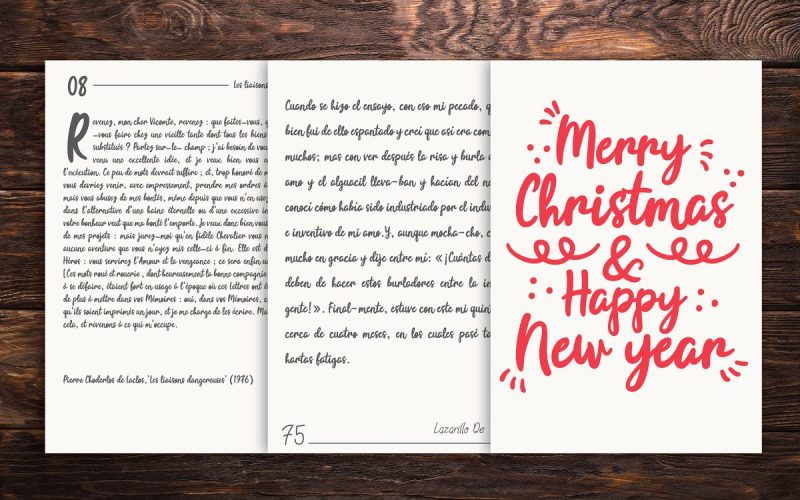 08 les liaisons
Revenez, mon cher Vicomte, revenez : que faites-vous, q
-vous faire chez une vieille tante dont tous les biens
substitués ? Partez sur-le- champ ; j'ai besoin de vou
venu une excellente idée, et je veux bien vous en
l'exécution. Ce peu de mots devrait suffire ; et, trop honoré de m
vous devriez venir, avec empressement, prendre mes ordres à
mais vous abusez de mes bontés, même depuis que vous n'en usez
dans l'alternative d'une haine éternelle ou d'une excessive in
votre bonheur veut que ma bonté l'emporte. Je veux donc bien vous
de mes projets : mais jurez-moi qu'en fidèle Chevalier vous n
aucune aventure que vous n'ayez mis celle-ci à fin. Elle est d
Héros : vous servirez l'Amour et la vengeance ; ce sera enfin u
[Ces mots roué et rouerie , dont heureusement la bonne compagnie
à se défaire, étaient fort en usage à l'époque où ces Lettres ont é
de plus à mettre dans vos Mémoires : oui, dans vos Mémoires, c
qu'ils soient imprimés un jour, et je me charge de les écrire. Ma
cela, et revenons à ce qui m'occupe.
Pierre Choderlos de Laclos,'les liaisons dangereuses' (1976)
Cuando se hizo el ensayo, con eso mi pecado, q
bien fui de ello espantado y creí que así era com
muchos; mas con ver después la risa y burla q
amo y el alguacil lleva-ban y hacían del ne
conocí cómo había sido industriado por el indus
e inventivo de mi amo.Y, aunque mocha-cho, c
mucho en gracia y dije entre mí: «¡Cuántas d
deben de hacer estos burladores entre la in
gente!». Final-mente, estuve con este mi quint
cerca de cuatro meses, en los cuales pasé ta
hartas fatigas.
75 Lazarillo De
Merry
Christmas
&
Happy
New year